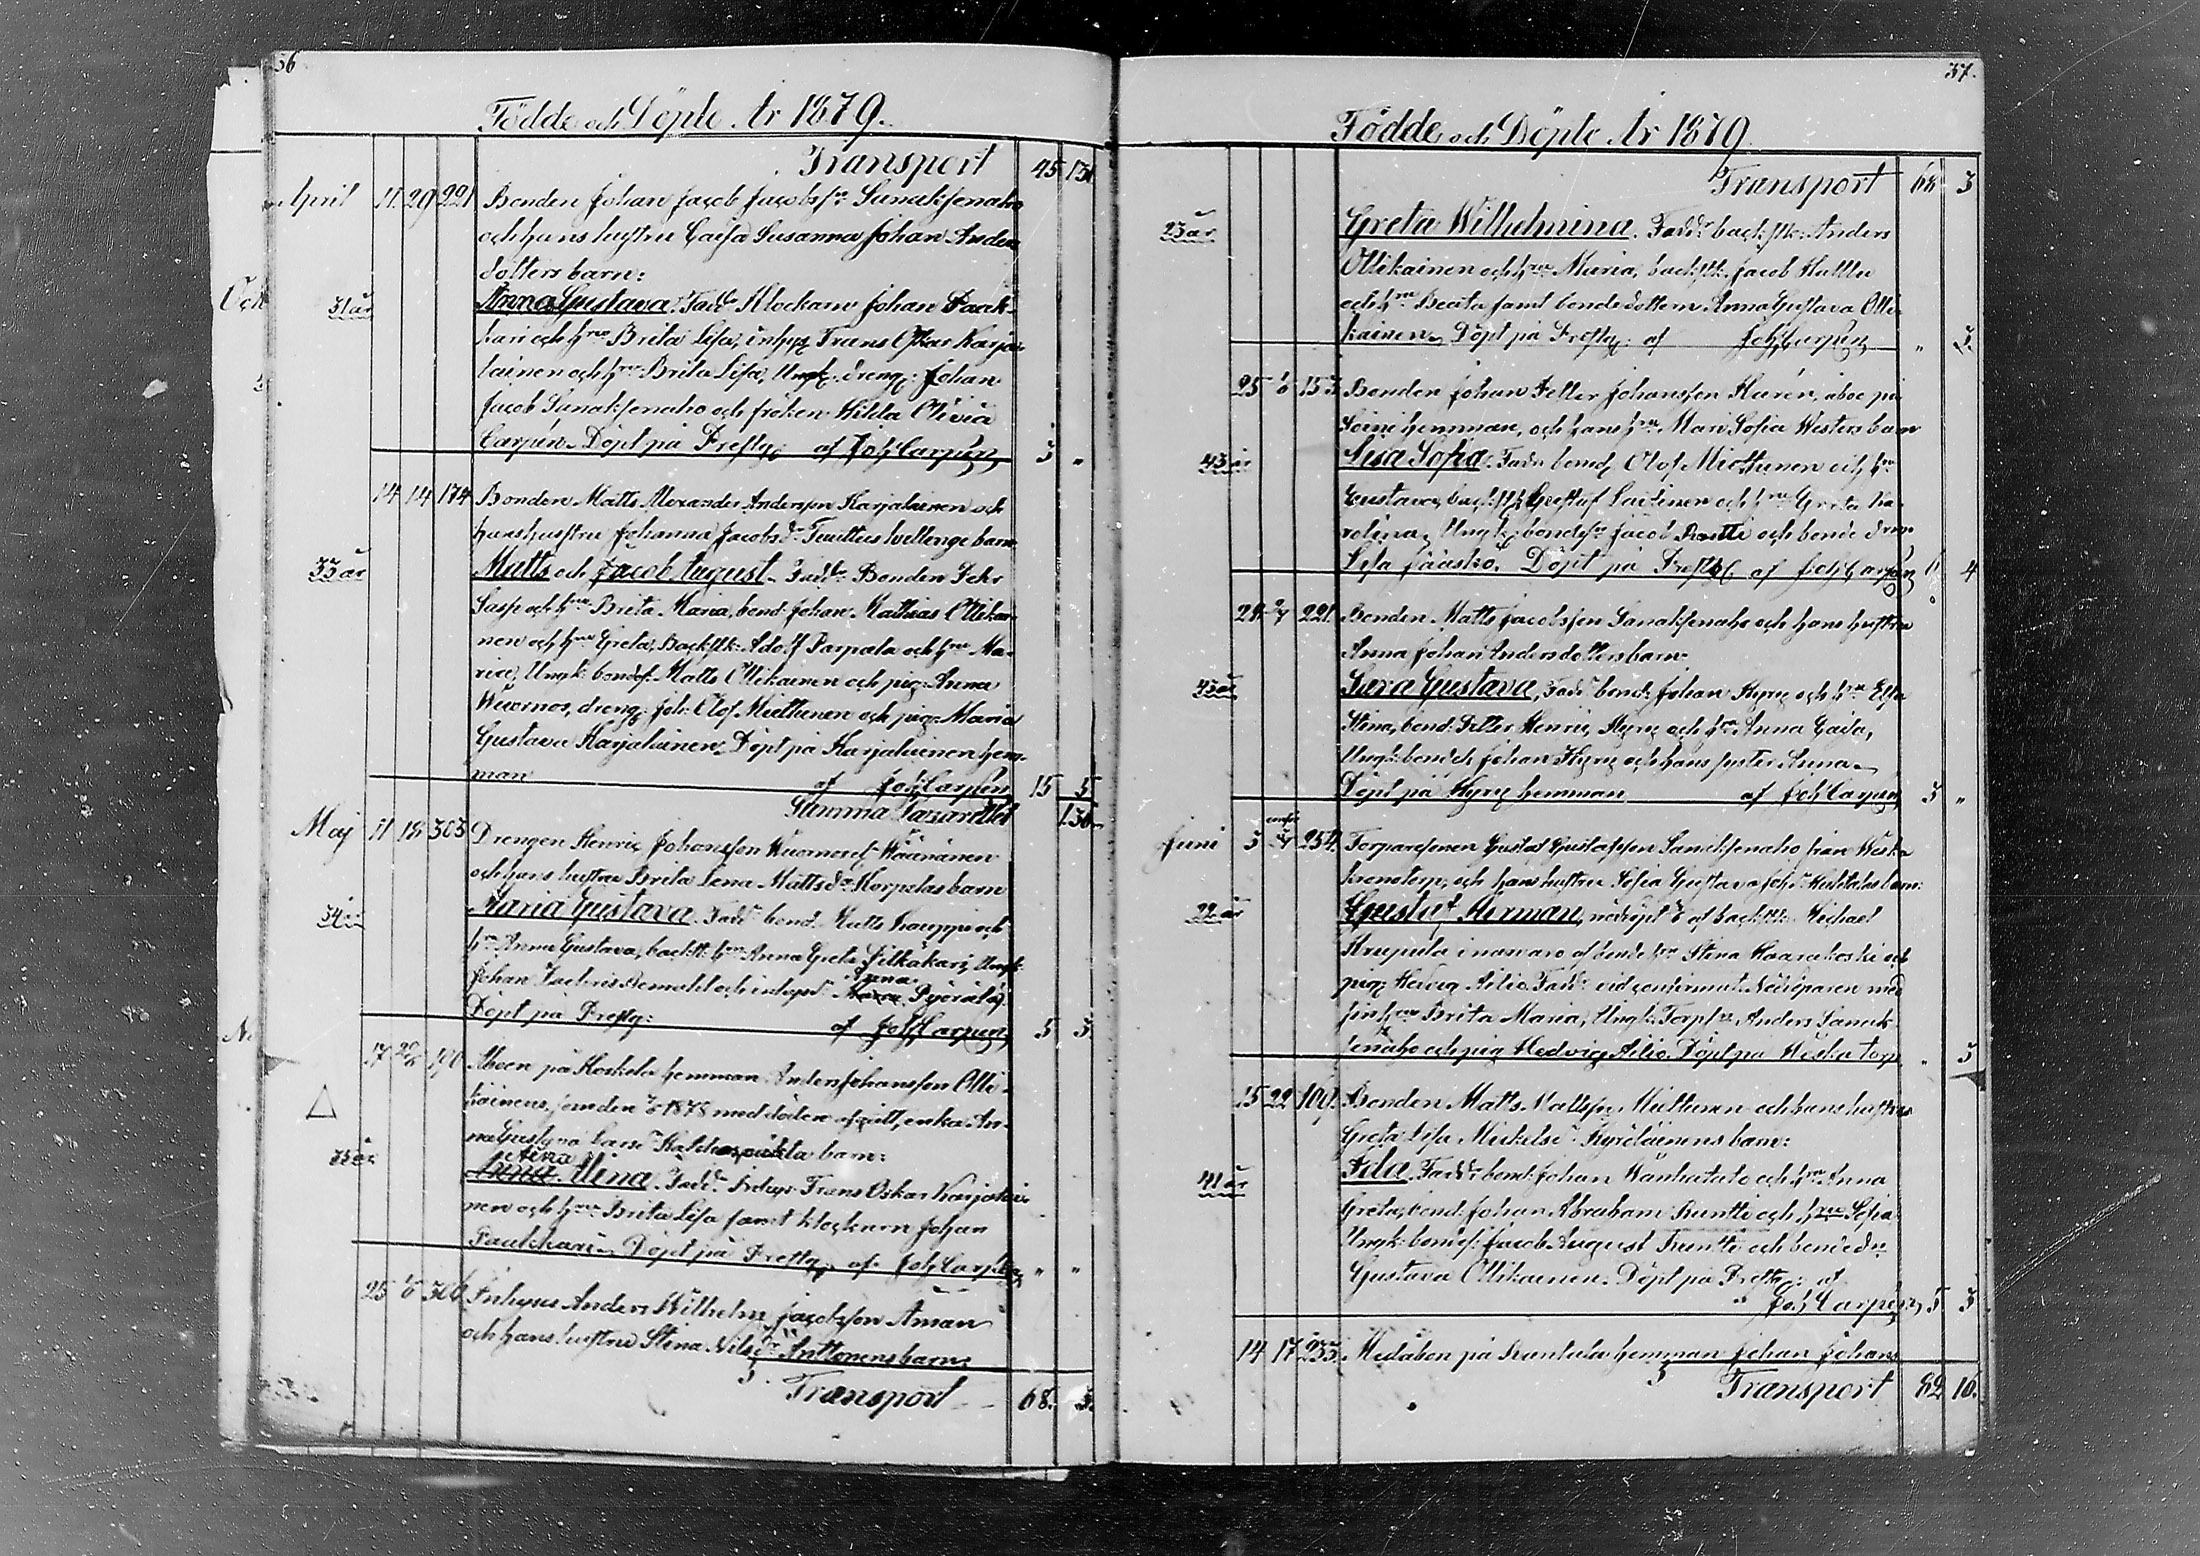 36
Födde och Döpte År 1879.
Transport 45 131
April 11. 29 221 Bonden Johan Jacob Jacobsson Sanaksenaho
och hans hustru Cajsa Susanna Johan Anders
dotters barn:
31 år Anna Gustava. Fadd: Klockaren Johan Pauk-
kari och h:ru Brita Lisa, inhys Frans Oskar Karja-
lainen och h:ru Brita Lisa, Ungk. dreng: Johan
Jacob Sanaksenaho och fröken Hilda Olivia
Carpén. Döpt på Prestg. af Joh. Carpén 3 "
14 14 174 Bonden Matts Alexander Andersson Karjalainen och
hans hustru Johanna Jacobsd:r tvillinge barn
33 år Matts och Jacob August. Fadd: Bonden Pehr
och h:ru Brita Maria, bond: Johan Mathias Ollikai-
nen och h:ru Greta, Backstk: Adolf Parpala och h:ru Ma-
ria, Ungk: bonds: Matts Ollikainen och pig: Anna
Wuornos, dreng: Joh: Olof Miettunen och pig: Maria
Gustava Karjalainen. Döpt på Karjalainen hem-
man af Joh. Carpén 15 5
Summa Lazarettet 136
Maj 11 18 303 Drengen Henric Johansson
och hans hustru Brita Lena Mattsd:r Korpelas barn
34 år Maria Gustava. Fadd: bond: Matts Kauppi och
h:ru Anna Gustava, backstk: h:ru Anna Greta Pitkäkari, Ungk:
Anna
Johan och inhysd: Pyörälä
Döpt på Prestg: af Joh. Carpén 5 5
17 190 Åboen på Koskela hemman Anders Johansson Olli-
kainens, som den 1878 med döden afgått, enka An-
na Gustava barn:
Alina
33 år Anna Alina. Fadd: Inhys Frans Oskar Karjalai-
nen och h:ru Brita Lisa samt klockaren Johan
Paukkari. Döpt på Prestg. af Joh. Carpén " "
25 306 Inhyses Anders Wilhelm Jacobsson Åman
och hans hustru Stina Nilsd:r Anttonens barn:
Transport 68. 3.
37.
Födde och Döpte År 1879
Transport 68 3
23 år Greta Wilhelmina. Fadd: backstk: Anders
Ollikainen och h:ru Maria, backstk. Jacob
och h:ru Beata samt bondedottern Anna Gustava Olli-
kainen. Döpt på Prestg. af Joh. Carpén " 3.
25 153 Bonden Johan Petter Johansson, åboe på
hemman, och hans h:ru Mari Sofia Westers barn
43 år Lisa Sofia. Fadd: bond: Olof Miettunen och h:ru
Gustava, backstk: Gustaf Laitinen och h:ru Greta Ka-
rolina, Ungk: bondes: Jacob Runtti och bonde d:ren
Lisa Jääskö. Döpt på Prestg. af Joh. Carpén 4
28 221. Bonden Matts Jacobsson Sanaksenaho och hans hustru
Anna Johan Andersdotters barn:
43 år Sara Gustava, Fadd: bond: Johan Kyrö och h:ru Elsa
Stina, bond: Petter Henric Kyrö och h:ru Anna Cajsa,
Ungk: bonds Johan Kyrö och hans syster Anna.
Döpt på Kyrö hemman af Joh. Carpén 3 "
Juni 3 254. Torparesonen Gustaf Gustafsson Sanaksenaho från Wiska
kronotorp, och hans hustru Sofia Gustava barn:
22 år Gustaf Herman, nöddöpt af backstk: Michael
Krupula i närvaro af bonde h:ru Stina Haarakoski och
pig: Hedvig Ailio. Fadd: vid confirmat: Nöddöparen med
sin h:ru Brita Maria, Ungk: Torps:n Anders Sanak-
senaho och pig Hedvig Ailio. Döpt på Wiska torp " 3
15 22 109. Bonden Matts Mattsson Miettunen och hans hustrus
Greta Lisa Mickelsd:r barn:
41 år Ida. Fadd: bond: Johan Wanhatalo och h:ru Anna
Greta, bond: Johan Abraham Runtti och h:ru Sofia
Ungk: bonds: Jacob August Runtti och bonded:r
Gustava Ollikainen. Döpt på Prestg: af
Joh. Carpén 5 3
14 17 233. Medåboen på hemman Johan Johans
Transport 82 16.